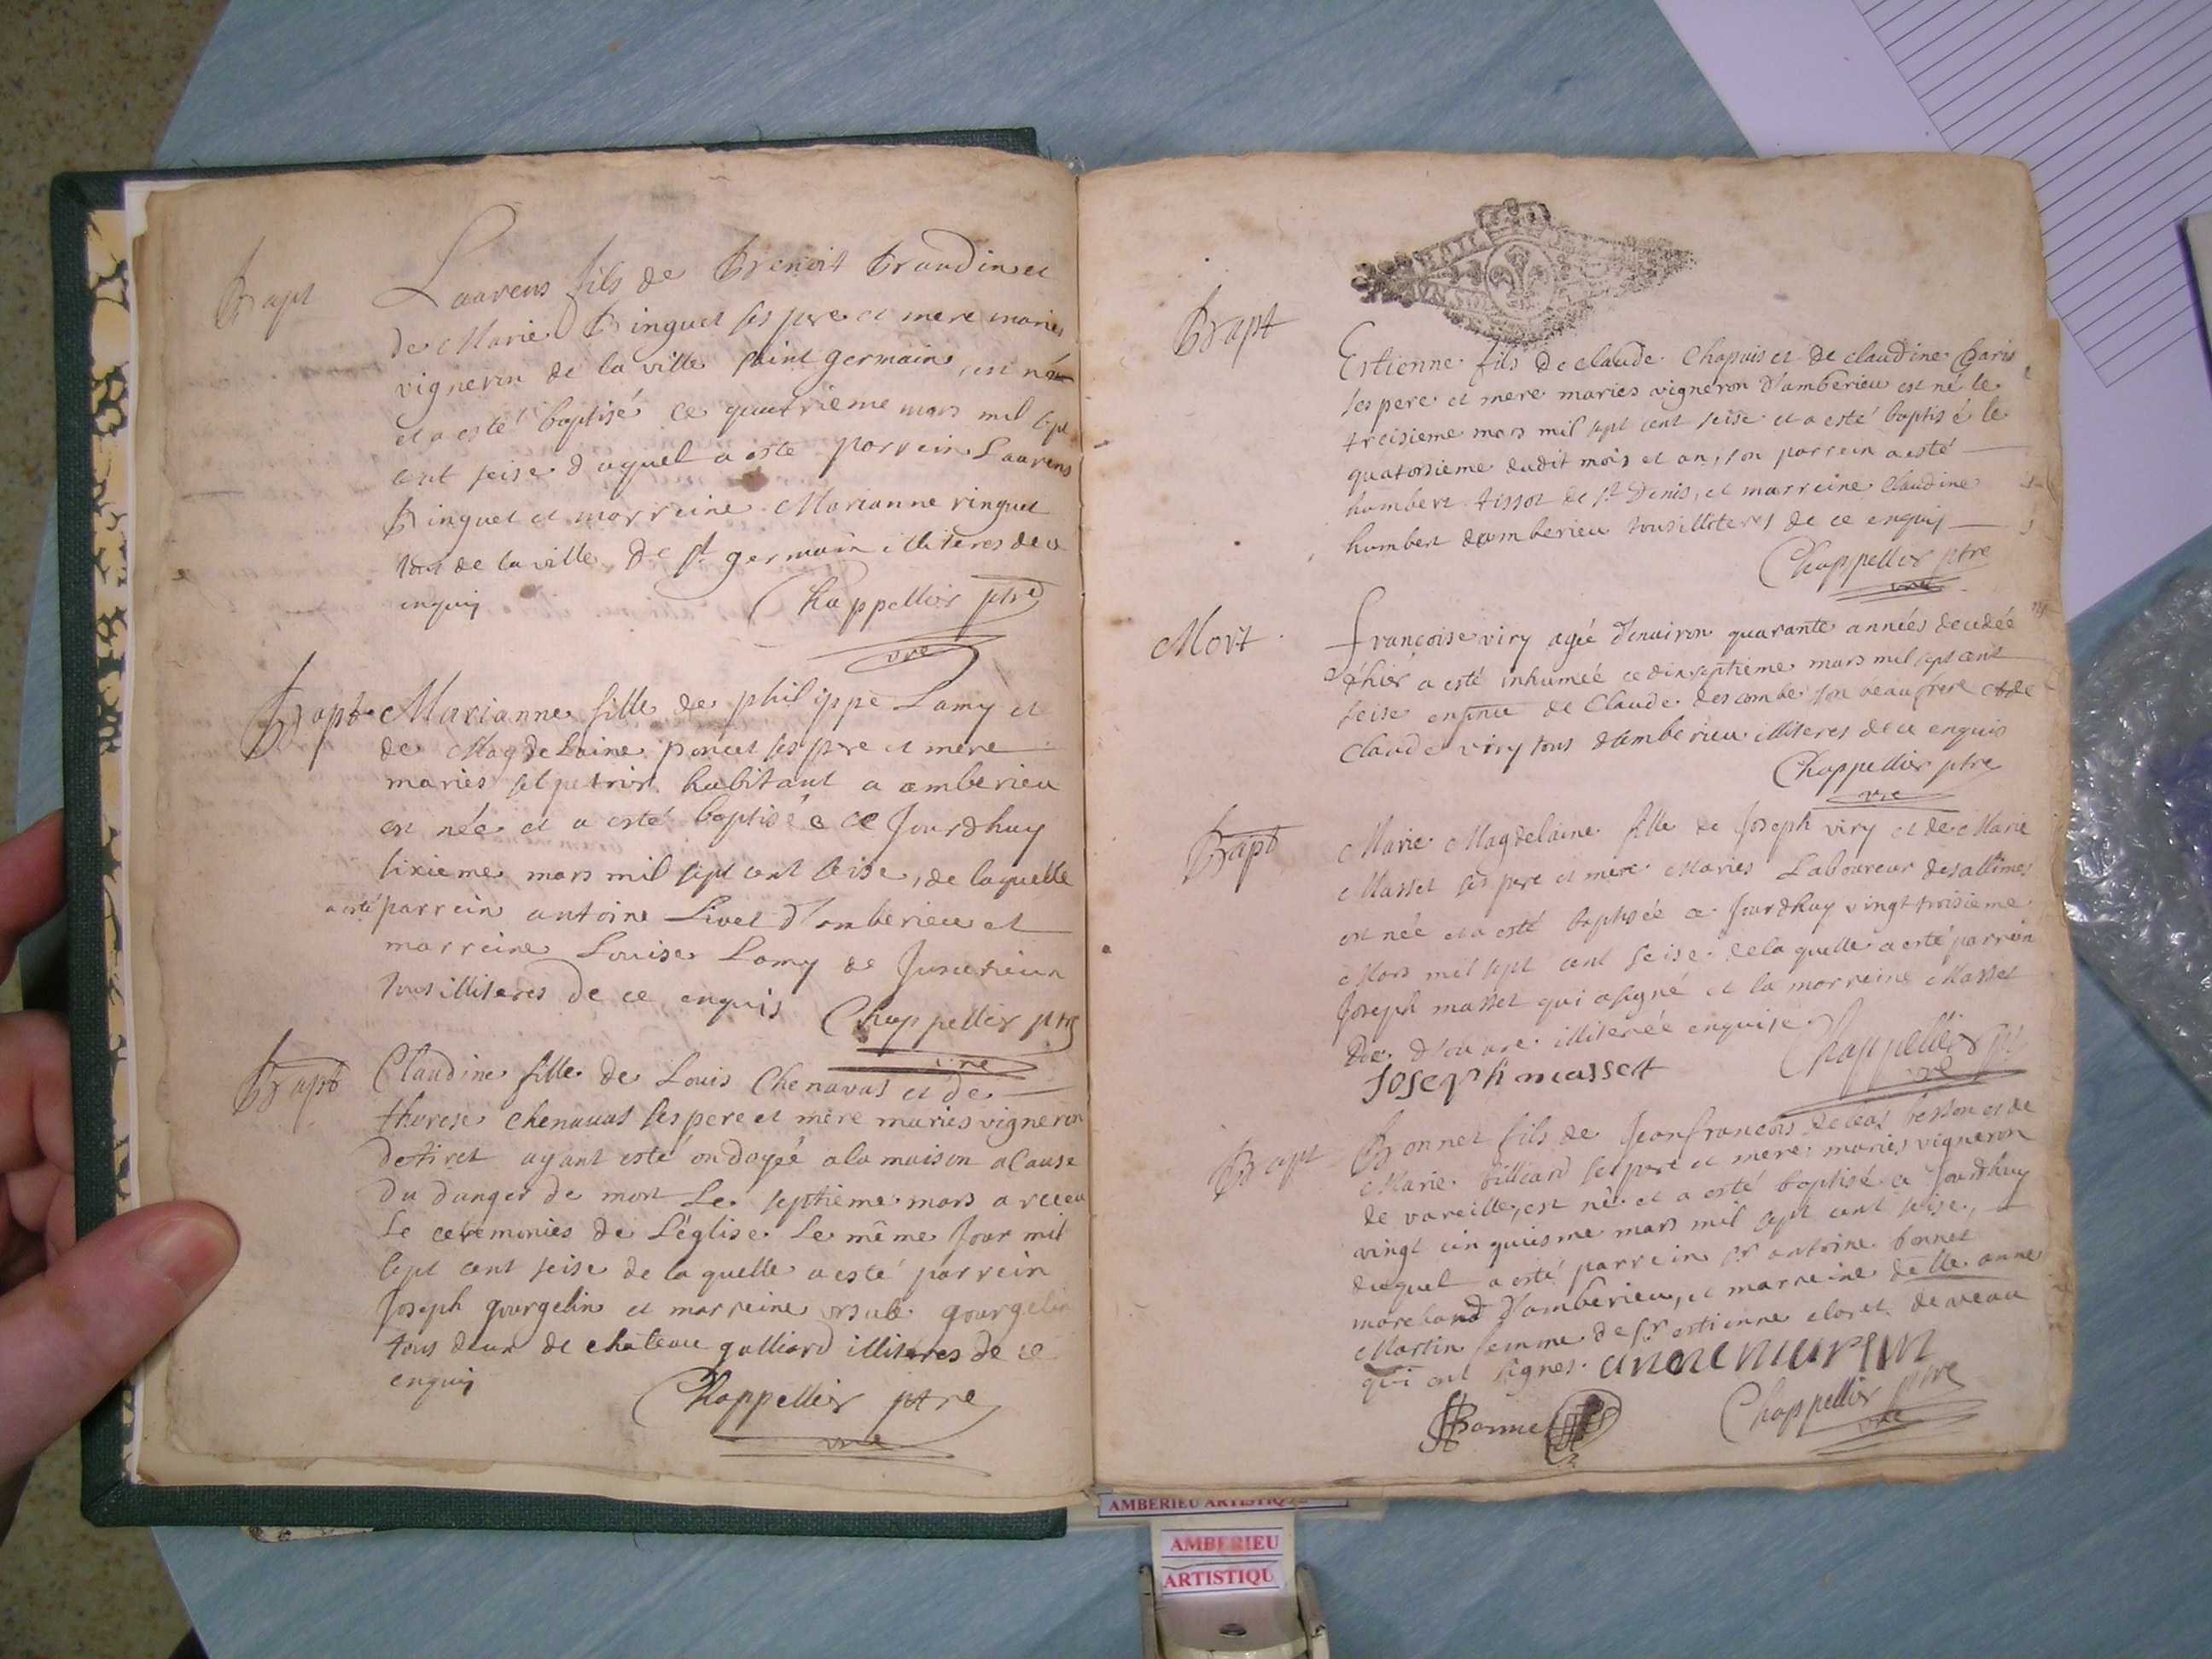 Bapt
Laurens fils de Benoit Braudin et
de Marie Binguet ses pere et mere mariés
vigneron de la ville saint germain, est né
et a esté baptisé ce quatrieme mars mil sept
cent seise duquel a esté parrein Laurens
Binguet et marreine Marianne ringuet
tous de la ville de st germain illiteres de ce
enquis
Chappellier ptre
vre
Bapt
Marianne fille de philippe Lamy et
de Magdelaine poncet ses pere et mere
mariés salpetrier habitant a amberieu
est née et a esté baptisée ce Jourdhuy
sixieme mars mil sept cent seise, de laquelle
a esté parrein antoine Livet d'amberieu et
marreine Louise Lamy de Jusurieux
tous illiteres de ce enquis
Chappellier ptre
vre
Bapt
Claudine fille de Louis Chenavas et de
therese chenavas ses pere et mere mariés vigneron
de tiret ayant esté ondoyée a la maison a cause
du danger de mort Le septieme mars a receu
Le ceremonies de L'église Le même Jour mil
sept cent seise de laquelle a esté parrein
Joseph gourgelin et marreine ursule gourgelin
tous deux de chateau galliard illiteres de ce
enquis
Chappellier ptre
vre
Bapt
Estienne fils de claude Chapuis et de claudine
ses pere et mere mariés vigneron d'amberieu est né le
treisieme mars mil sept cent seise et a esté baptisé le
quatorsieme dudit mois et an, son parrein a esté
humbert tissot de st Denis, et marreine claudine
humbert d'amberieu tous illiteres de ce enquis
Chappellier ptre
vre
Mort
francoise viry agée d'environ quarante années decedée
hier a esté inhumée ce dix septieme mars mil sept cent
seise en pnce de Claude descombe son beaufrere et de
Claude viry tous d'amberieu illiteres de ce enquis
Chappellier ptre
vre
Bapt
Marie Magdelaine fille de Joseph viry et de Marie
Masset ses pere et mere Mariés Laboureur des allimes
est née et a esté baptisée ce Jourdhuy vingt troisieme
Mars mil sept cent seise de laquelle a esté parrein
Joseph masset qui a signé et la marreine Masset
de illiterée enquise
Joseph massett
Chappellier ptre
vre
Bapt
Bonnet fils de Jean francois besson et de
Marie billiard ses pere et mere mariés vigneron
de vareille, est né et a esté baptisé ce Jourdhuy
vingt cinquiesme mars mil sept cent seise,
duquel a esté parrein sr antoine bonnet
marchand d'amberieu, et marreine delle anne
Martin femme de sr estienne
qui ont signes. anne martin
Bonnet
Chappellier ptre
vre
AMBERIEU ARTISTIQUE
AMBERIEU
ARTISTIQU